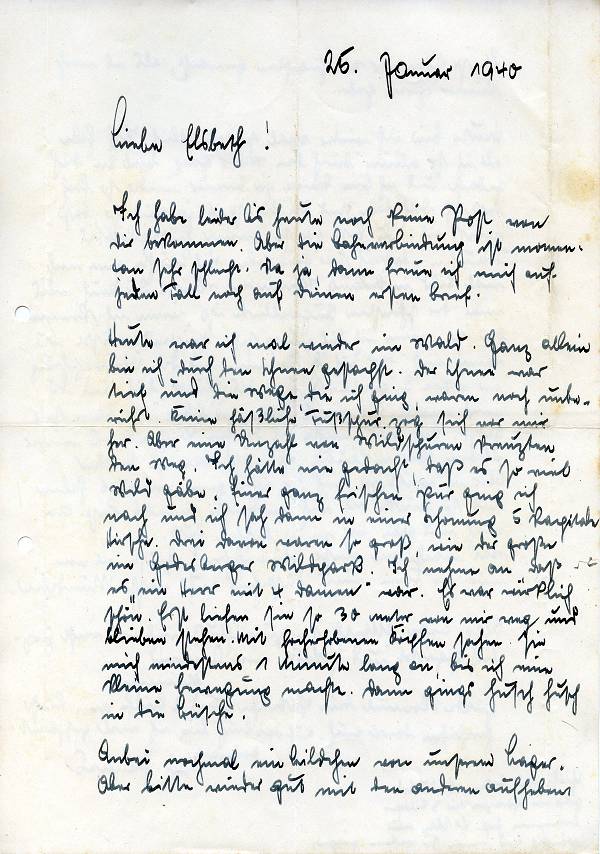 26. Januar 1940
Liebe Elsbeth!
Ich habe leider bis heute noch keine Post von
dir bekommen. Aber die Bahnverbindung ist momen-
tan sehr schlecht. Na ja, dann freue ich mich auf
jeden Fall noch auf deinen ersten Brief.
Heute war ich mal wieder im Wald. Ganz allein
bin ich durch den Schnee gestapft. Der Schnee war
tief und die Wege, die ich ging, waren noch unbe-
rührt. Keine häßliche Fußspur zog sich vor mir
her. Aber eine Anzahl von Wildspuren kreuzten
den Weg. Ich hätte nie gedacht, daß es so viel
Wild gäbe. Einer ganz frischen Spur ging ich
nach und ich sah dann in einer Schonung 5 kapitale
Hirsche. Drei davon waren so groß, wie der große
im Godesberger Wildpark. Ich nehme an daß
es "ein Herr mit 4 Damen" war. Es war wirklich
schön. Erst liefen sie so 30 meter von mir weg und
blieben stehen. Mit hocherhobenen Köpfen sahen sie
mich mindestens 1 Minute lang an, bis ich eine
kleine Bewegung machte. Dann gings husch husch
in die Büsche.
Anbei nochmal ein Bildchen von unserem Lager.
Aber bitte wieder gut mit den andern aufheben